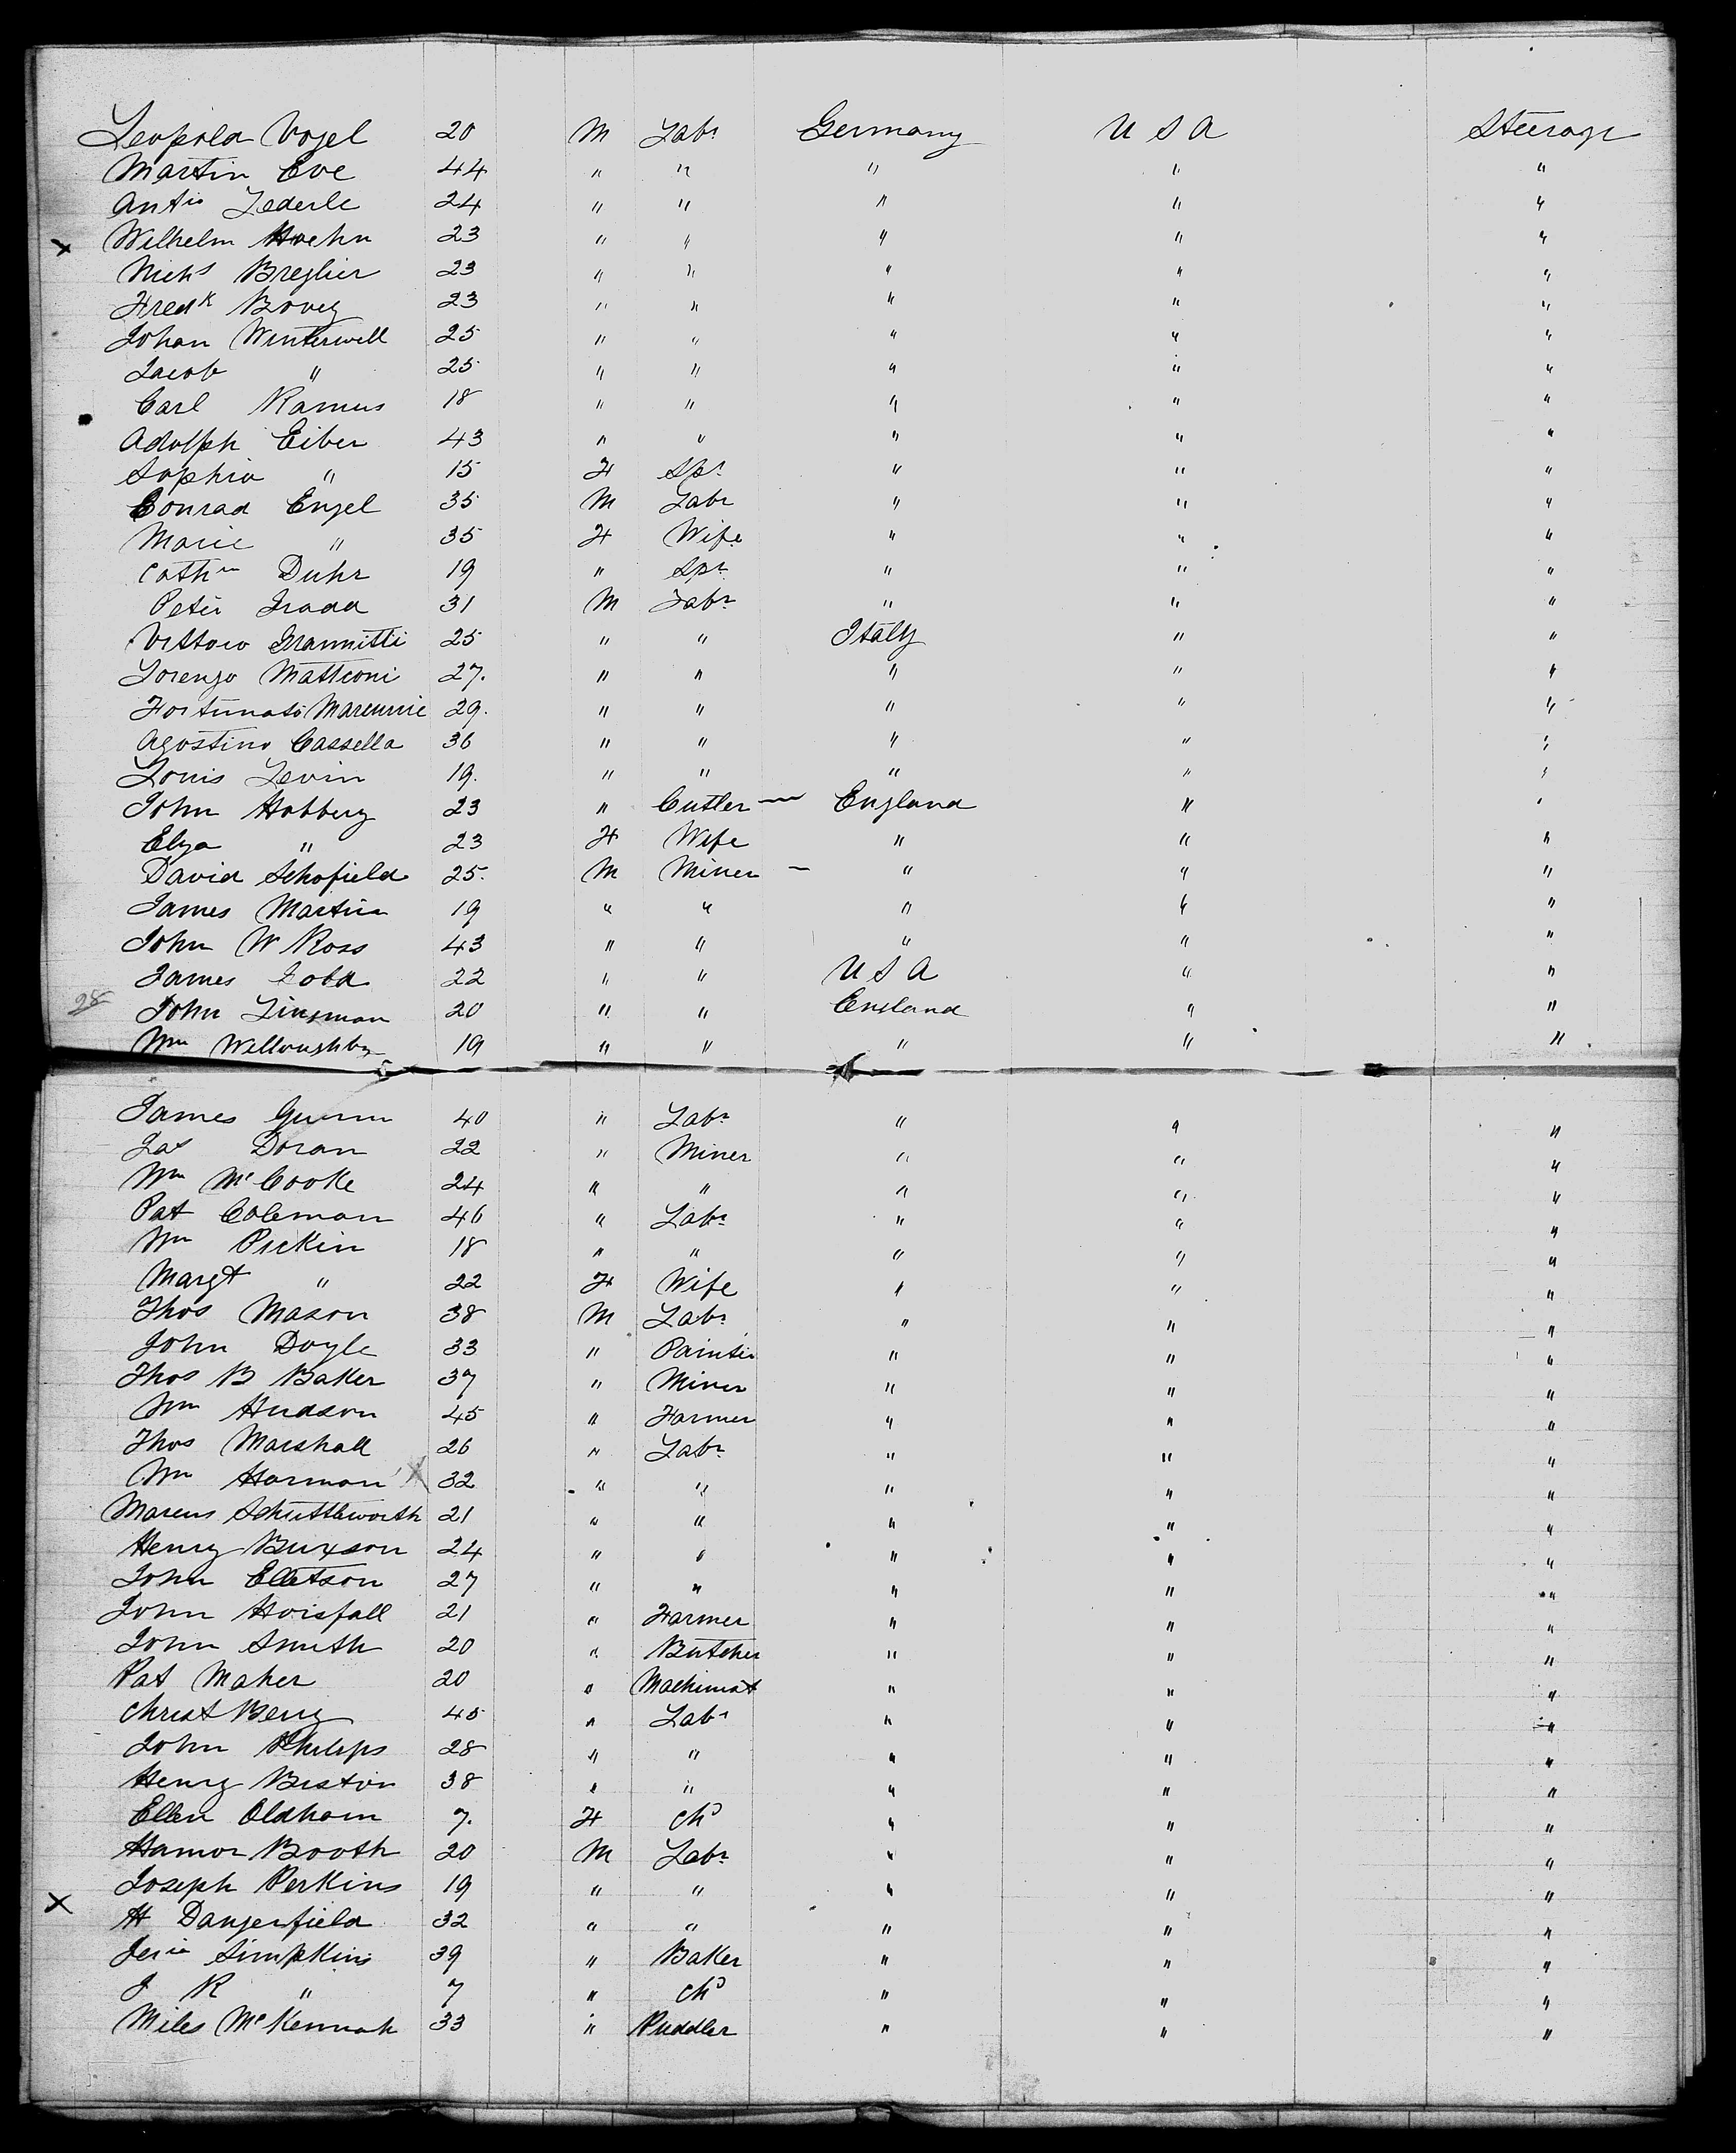 Leopold Vogel 20 M Labr Germany U S A Steerage
Martin Eve 44 " " " " "
Anto Lederle 24 " " " " "
x Wilhelm Hoehn 23 " " " " "
Nichs Breglier 23 " " " " "
Fredk Bovey 23 " " " " "
Johan Winterwell 25 " " " " "
Jacob " 25 " " " " "
Carl Ramus 18 " " " " "
Adolph Eiber 43 " " " " "
Sophia " 15 F Spr " " "
Conrad Engel 35 M Labr " " "
Marie " 35 F Wife " " "
Cathn Duhr 19 " Spr " " "
Peter 31 M Labr " " "
25 " " Italy " "
Lorenzo Matteoni 27. " " " " "
Fortunato 29. " " " " "
Agostino Cassella 36 " " " " "
Louis Levin 19. " " " " "
John Hobbery 23 " Cutler England " "
Elza " 23 F Wife " " "
David Schofield 25. M Miner " " "
James Martin 19 " " " " "
John W Ross 43 " " " " "
James 22 " " U S A " "
28 John Linsman 20 " " England " "
Wm Willoughby 19 " " " " "
James Gunn 40 " Labr " " "
Jas Doran 22 " Miner " " "
Wm McCooke 24 " " " " "
Pat Coleman 46 " Labr " " "
Wm Pickin 18 " " " " "
Margt " 22 F Wife " " "
Thos Mason 38 M Labr " " "
John Doyle 33 " Painter " " "
Thos B Baker 37 " Miner " " "
Wm Hudson 45 " Farmer " " "
Thos Marshall 26 " Labr " " "
Wm Harman x 32 " " " " "
Marcus Schuttleworth 21 " " " " "
Henry Buxson 24 " " " " "
John Elletson 27 " " " " "
John Horsfall 21 " Farmer " " "
John Smith 20 " Butcher " " "
Pat Maher 20 " Machinist " " "
Christ Berry 45 " Labr " " "
John Philips 28 " " " " "
Henry Beston 38 " " " " "
Ellen Oldham 7. F Chd " " "
Hamor Booth 20 M Labr " " "
Joseph Perkins 19 " " " " "
x H Dangerfield 32 " " " " "
Jeria Simpkins 39 " Baker " " "
J R " 7 " Chd " " "
Miles McKennah 33 " Puddler " " "